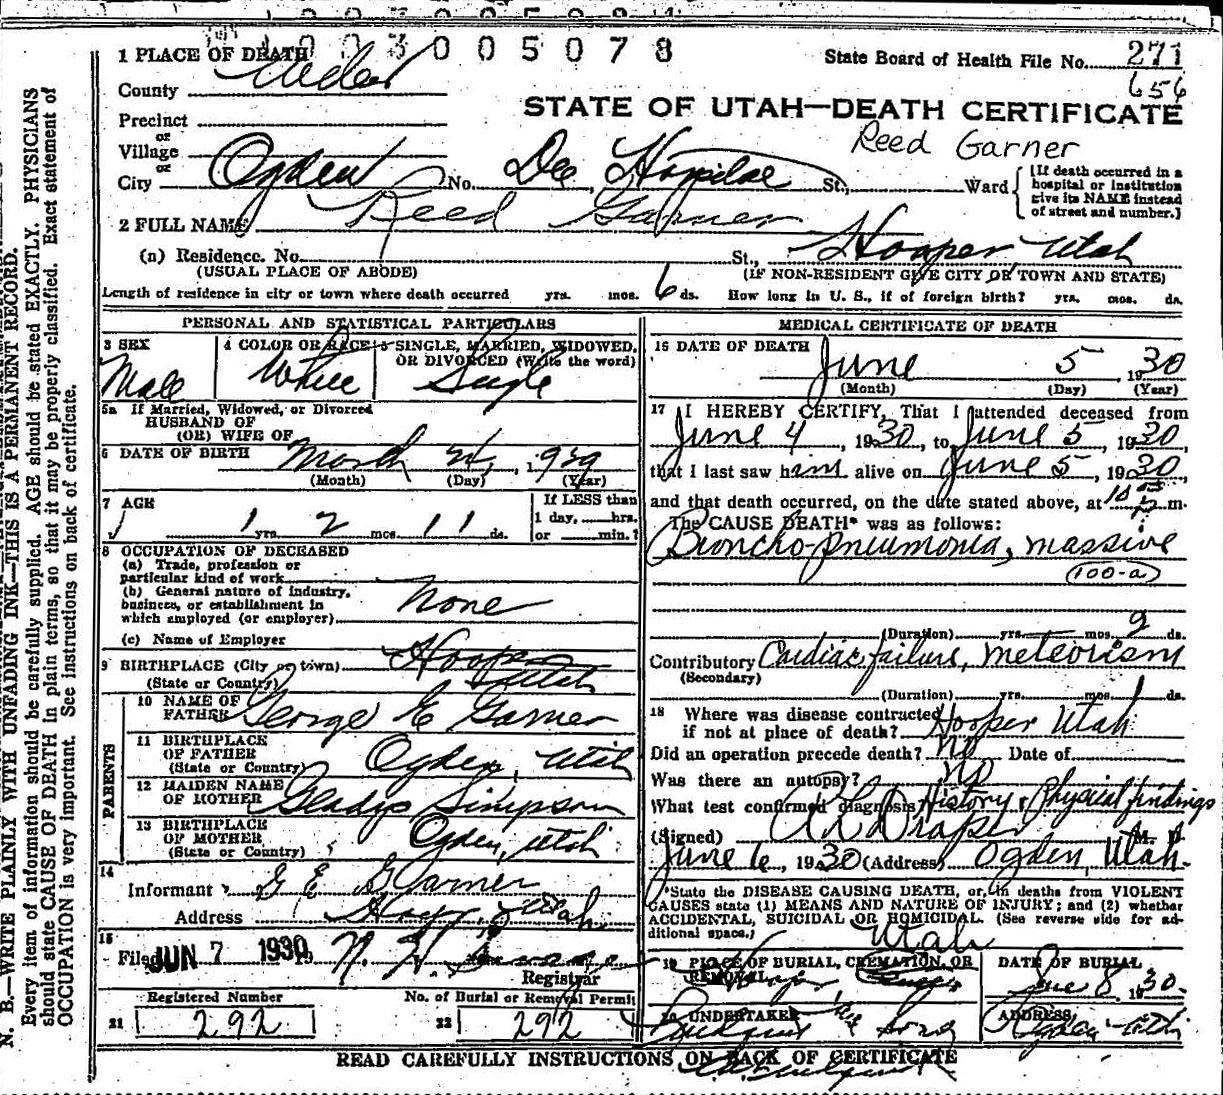 1003005078
1 PLACE OF DEATH
State Board of Health File No. 271
County Weber
656
STATE OF UTAH—DEATH CERTIFICATE
Precinct
Reed Garner
or
Village
or
City Ogden No. Dee Hospital St., Ward
[If death occurred in a
hospital or institution
give its NAME instead
of street and number.]
2 FULL NAME Reed Garner
(a) Residence. No. St., Hooper, Utah
(USUAL PLACE OF ABODE) (IF NON-RESIDENT GIVE CITY OR TOWN AND STATE)
Length of residence in city or town where death occurred yrs. mos. 6 ds. How long in U. S., if of foreign birth? yrs. mos. ds.
PERSONAL AND STATISTICAL PARTICULARS
3 SEX
Male
4 COLOR OR RACE
White
5 SINGLE, MARRIED, WIDOWED,
OR DIVORCED (Write the word)
Single
5a If Married, Widowed, or Divorced
HUSBAND OF
(OR) WIFE OF
6 DATE OF BIRTH March 24, 1929
(Month) (Day) (Year)
7 AGE
1 yrs. 2 mos. 11 ds.
If LESS than
1 day, hrs.
or min.?
8 OCCUPATION OF DECEASED
(a) Trade, profession or
particular kind of work
(b) General nature of industry,
business, or establishment in
which employed (or employer)
None
(c) Name of Employer
9 BIRTHPLACE (City or town) Hooper
(State or Country) Utah
PARENTS
10 NAME OF
FATHER George E Garner
11 BIRTHPLACE
OF FATHER
(State or Country) Ogden, Utah
12 MAIDEN NAME
OF MOTHER Gladys Simpson
13 BIRTHPLACE
OF MOTHER
(State or Country) Ogden, Utah
14
Informant G E Garner
Address Hooper, Utah
15
Filed JUN 7 1930 N. H.
Registrar
Registered Number
21 292
No. of Burial or Removal Permit
22 292
MEDICAL CERTIFICATE OF DEATH
16 DATE OF DEATH
June 5, 1930
(Month) (Day) (Year)
17 I HEREBY CERTIFY, That I attended deceased from
June 4, 1930, to June 5, 1930,
that I last saw him alive on June 5, 1930
and that death occurred, on the date stated above, at m.
The CAUSE DEATH* was as follows:
Broncho-pneumonia, massive
100-a
(Duration) yrs. mos. 9 ds.
Contributory Cardiac failure, meteorism
(Secondary)
(Duration) yrs. mos. 1 ds.
18 Where was disease contracted
if not at place of death? Hooper Utah
Did an operation precede death? no Date of
Was there an autopsy? no
What test confirmed diagnosis? History & Physical findings
(Signed) Draper M. D.
June 6, 1930 (Address) Ogden, Utah.
*State the DISEASE CAUSING DEATH, or, in deaths from VIOLENT
CAUSES state (1) MEANS AND NATURE OF INJURY; and (2) whether
ACCIDENTAL, SUICIDAL OR HOMICIDAL. (See reverse side for ad-
ditional space.)
Utah
19 PLACE OF BURIAL, CREMATION, OR
REMOVAL Hooper,
DATE OF BURIAL
June 8 1930.
20 UNDERTAKER
& Sons
ADDRESS
Ogden Utah
READ CAREFULLY INSTRUCTIONS ON BACK OF CERTIFICATE
N. B.—WRITE PLAINLY WITH UNFADING INK—THIS IS A PERMANENT RECORD.
Every item of information should be carefully supplied. AGE should be stated EXACTLY. PHYSICIANS
should state CAUSE OF DEATH in plain terms, so that it may be properly classified. Exact statement of
OCCUPATION is very important. See instructions on back of certificate.